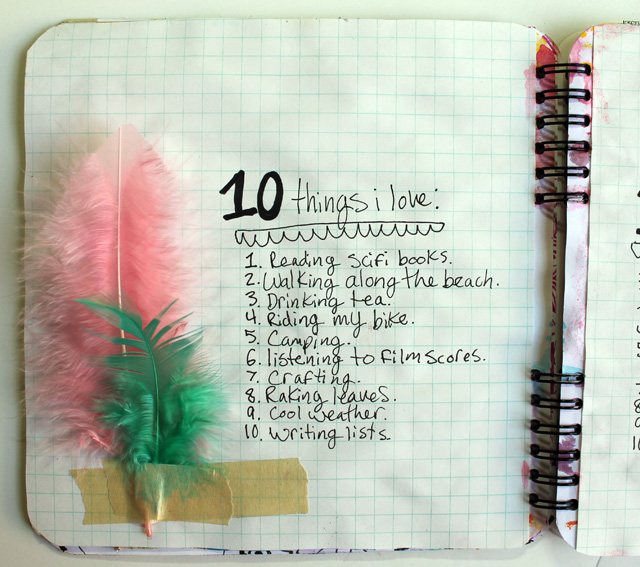 10 things i love:
1. Reading scifi books.
2. Walking along the beach.
3. Drinking tea.
4. Riding my bike.
5. Camping.
6. listening to film scores.
7. Crafting.
8. Raking leaves.
9. Cool weather.
10. writing lists.